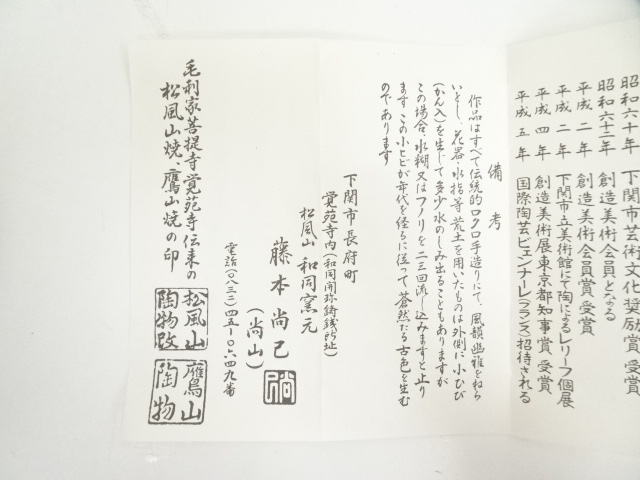 昭和六十年 下関市芸術文化奨励賞受賞
昭和六十二年 創造美術会員となる
平成二年 創造美術会員賞受賞
平成二年 下関市立美術館にて陶によるレリーフ個展
平成四年 創造美術展東京都知事賞受賞
平成五年 国際陶芸ビエンナーレ(フランス)招待される
備考
作品はすべて伝統的ロクロ手造りにて、風韻幽雅をねら
いとし、花器、水指等荒土を用いたものは外側に小ひび
(かん入)を生じて多少水のしみ出ることもありますが
この場合、水糊又はフノリを二三回流し込みますと止り
ます この小ヒビが年代を経るに従って蒼然たる古色を生む
のであります
下関市長府町
覚苑寺内(和同開珎鋳銭所址)
松風山 和同窯元
藤本尚己
(尚山)
尚
電話(〇八三二)四五ー〇六四九番
毛利家菩提寺覚苑寺伝来の
松風山焼、鷹山焼の印
松風山
陶物改
鷹山
陶物